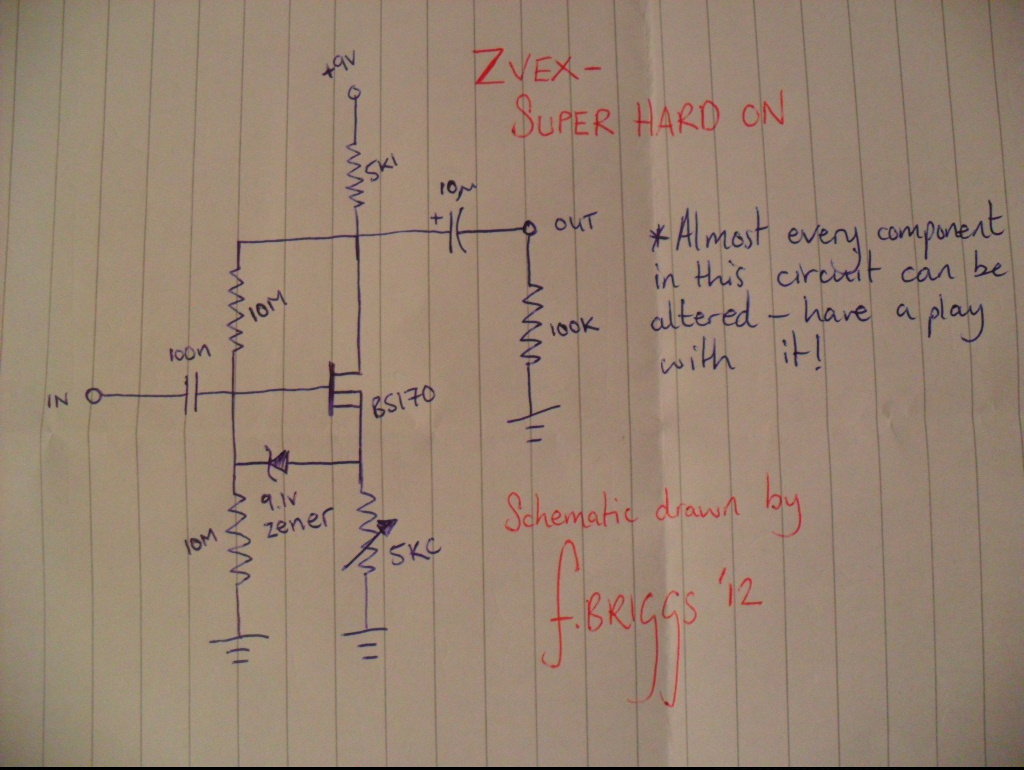 +9V
ZVEX-
SUPER HARD ON
5K1
10µ
+
OUT
*Almost every component
in this circuit can be
altered - have a play
with it!
10M
100K
100n
IN
BS170
9.1v
zener
10M
5KC
Schematic drawn by
f.BRIGGS '12